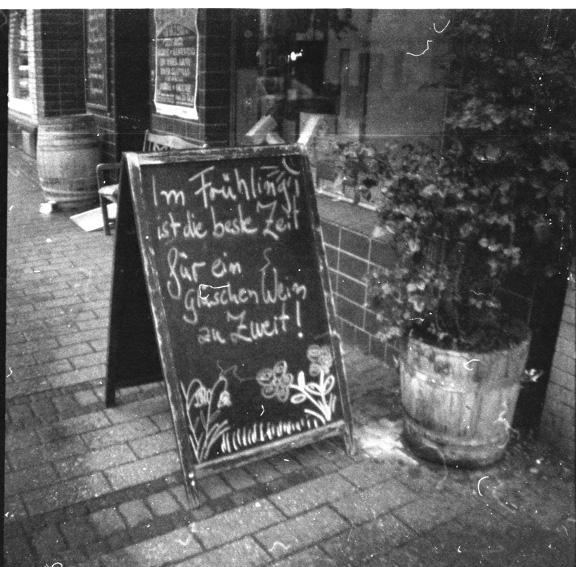 Im Frühling
ist die beste Zeit
für ein
gläschen Wein
zu Zweit!